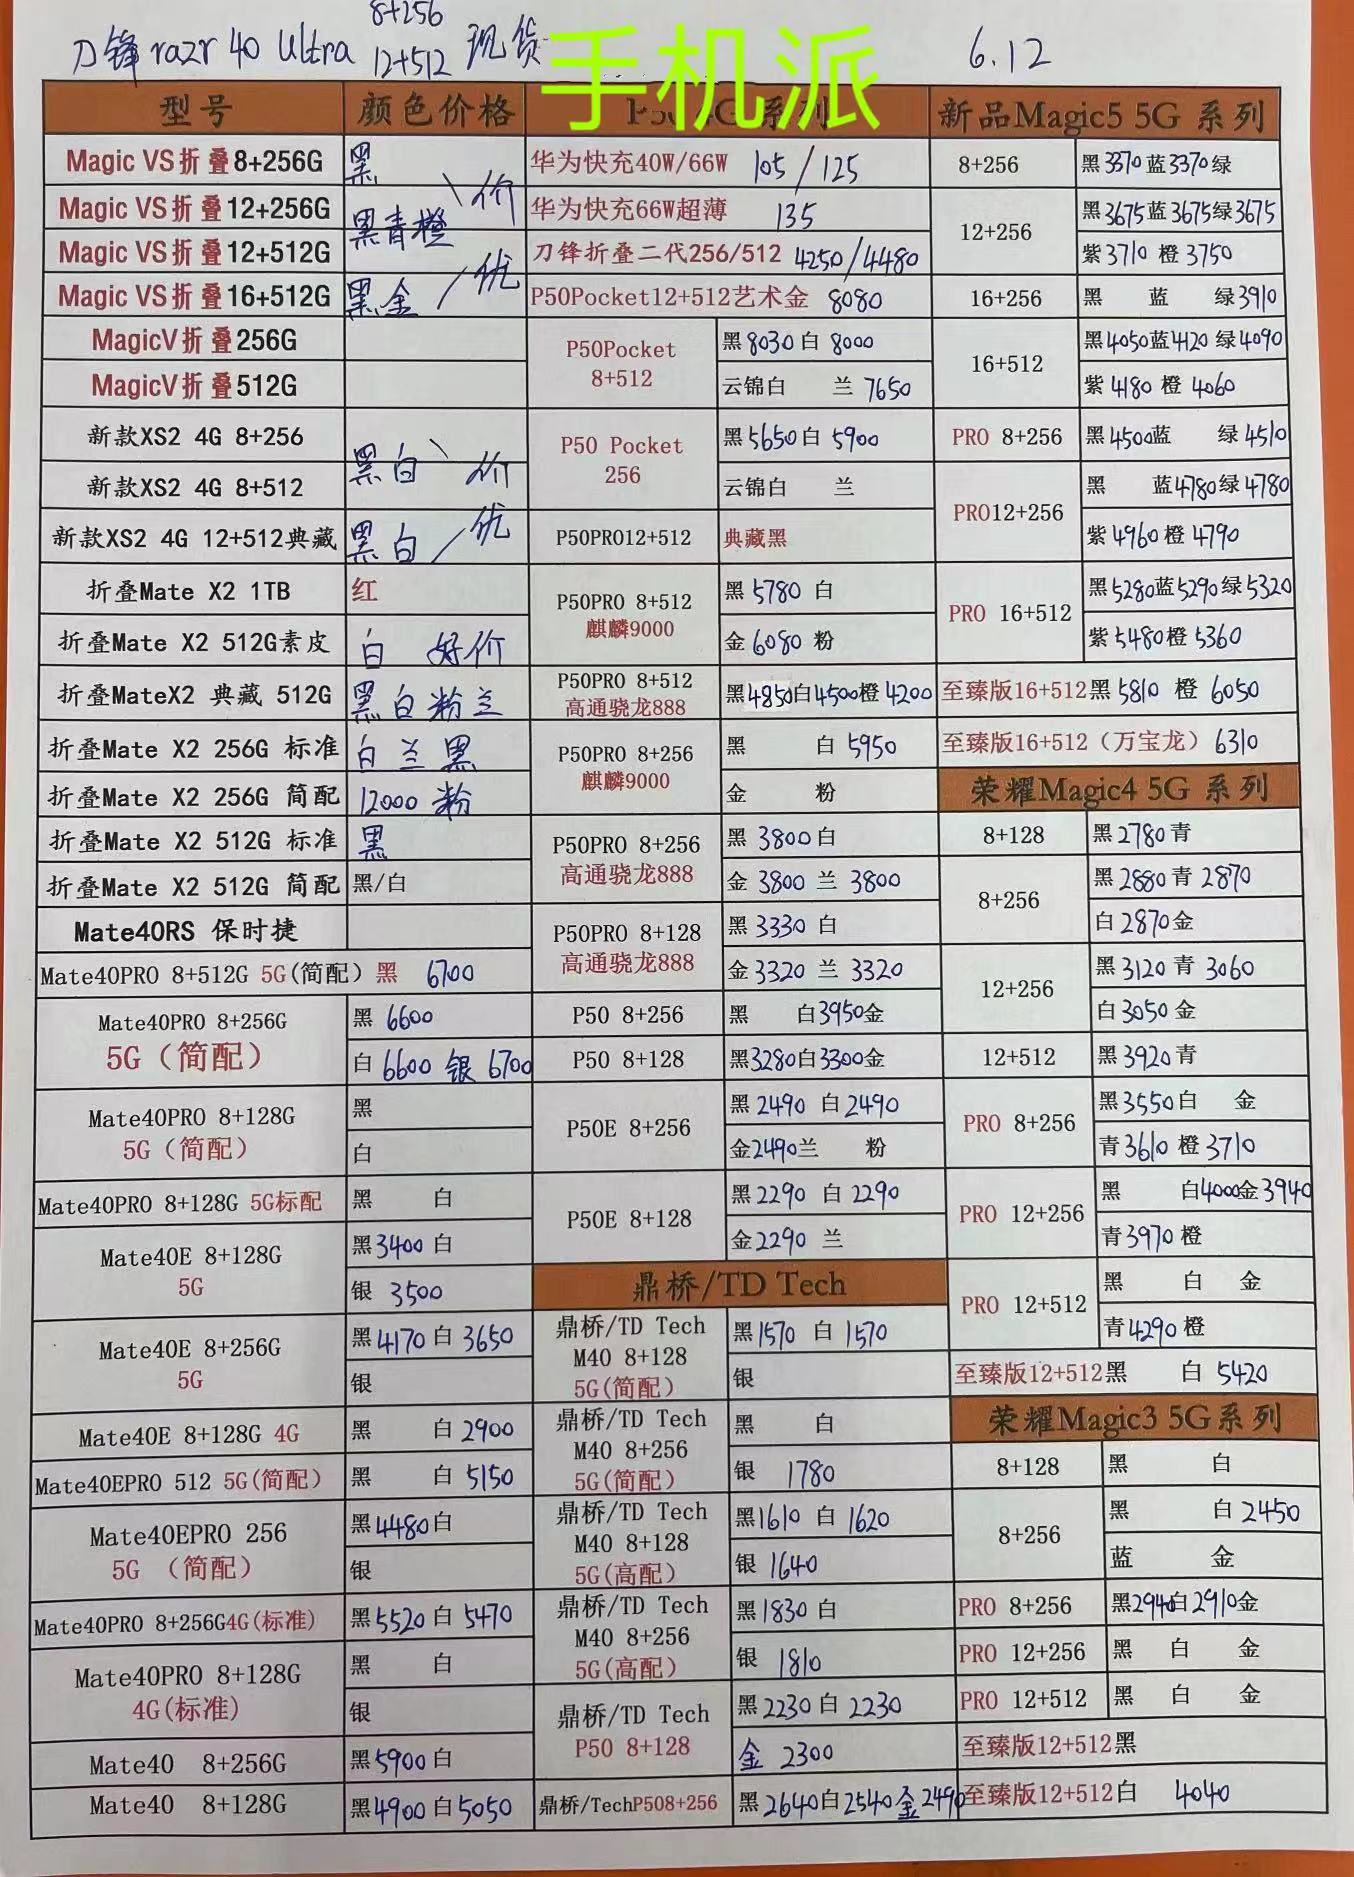 刀锋 razr 40 Ultra 8+256 12+512 现货
手机派
6.12
型号 颜色价格
Magic VS折叠8+256G 黑
Magic VS折叠12+256G 黑青橙 价
Magic VS折叠12+512G
Magic VS折叠16+512G 黑金 优
MagicV折叠256G
MagicV折叠512G
新款XS2 4G 8+256
新款XS2 4G 8+512 黑白 价
新款XS2 4G 12+512典藏 黑白 优
折叠Mate X2 1TB 红
折叠Mate X2 512G素皮 白 好价
折叠MateX2 典藏 512G 黑白粉兰
折叠Mate X2 256G 标准 白兰黑
折叠Mate X2 256G 简配 12000 粉
折叠Mate X2 512G 标准 黑
折叠Mate X2 512G 简配 黑/白
Mate40RS 保时捷
Mate40PRO 8+512G 5G(简配) 黑 6700
Mate40PRO 8+256G 黑 6600
5G(简配) 白 6600 银 6700
Mate40PRO 8+128G 黑
5G(简配) 白
Mate40PRO 8+128G 5G标配 黑 白
Mate40E 8+128G 黑3400 白
5G 银 3500
Mate40E 8+256G 黑4170 白 3650
5G 银
Mate40E 8+128G 4G 黑 白 2900
Mate40EPRO 512 5G(简配) 黑 白 5150
Mate40EPRO 256 黑4480白
5G (简配) 银
Mate40PRO 8+256G4G(标准) 黑5520 白 5470
Mate40PRO 8+128G 黑 白
4G(标准) 银
Mate40 8+256G 黑5900白
Mate40 8+128G 黑4900 白5050
P50 4G 系列
华为快充40W/66W 105/125
华为快充66W超薄 135
刀锋折叠二代256/512 4250/4480
P50Pocket12+512艺术金 8080
P50Pocket 黑8030 白 8000
8+512 云锦白 兰 7650
P50 Pocket 黑5650白 5900
256 云锦白 兰
P50PRO12+512 典藏黑
P50PRO 8+512 黑 5780 白
麒麟9000 金 6080 粉
P50PRO 8+512
高通骁龙888 黑4850白4500橙 4200
P50PRO 8+256 黑 白 5950
麒麟9000 金 粉
P50PRO 8+256 黑 3800白
高通骁龙888 金 3800 兰 3800
P50PRO 8+128 黑 3330 白
高通骁龙888 金3320 兰 3320
P50 8+256 黑 白3950金
P50 8+128 黑3280白3300金
P50E 8+256 黑 2490 白 2490
金2490兰 粉
P50E 8+128 黑2290 白 2290
金2290 兰
鼎桥/TD Tech
鼎桥/TD Tech 黑1570 白 1570
M40 8+128
5G(简配) 银
鼎桥/TD Tech 黑 白
M40 8+256
5G(简配) 银 1780
鼎桥/TD Tech 黑1610 白 1620
M40 8+128
5G(高配) 银 1640
鼎桥/TD Tech 黑1830 白
M40 8+256
5G(高配) 银 1810
鼎桥/TD Tech 黑2230白 2230
P50 8+128 金 2300
鼎桥/TechP508+256 黑2640白2540金2490
新品Magic5 5G 系列
8+256 黑3370蓝3370绿
12+256 黑3675蓝3675绿3675
紫3710 橙 3750
16+256 黑 蓝 绿3910
16+512 黑4050蓝4120 绿4090
紫 4180 橙 4060
PRO 8+256 黑4500蓝 绿 4510
PRO12+256 黑 蓝4780绿4780
紫4960 橙 4790
PRO 16+512 黑5280蓝5290绿5320
紫5480橙 5360
至臻版16+512黑 5810 橙 6050
至臻版16+512(万宝龙) 6310
荣耀Magic4 5G 系列
8+128 黑 2780 青
8+256 黑 2880 青 2870
白 2870金
12+256 黑 3120 青 3060
白3050 金
12+512 黑 3920 青
PRO 8+256 黑3550白 金
青3610 橙 3710
PRO 12+256 黑 白4000金3940
青3970 橙
PRO 12+512 黑 白 金
青4290橙
至臻版12+512黑 白 5420
荣耀Magic3 5G系列
8+128 黑 白
8+256 黑 白 2450
蓝 金
PRO 8+256 黑2940白2910金
PRO 12+256 黑 白 金
PRO 12+512 黑 白 金
至臻版12+512黑
至臻版12+512白 4040